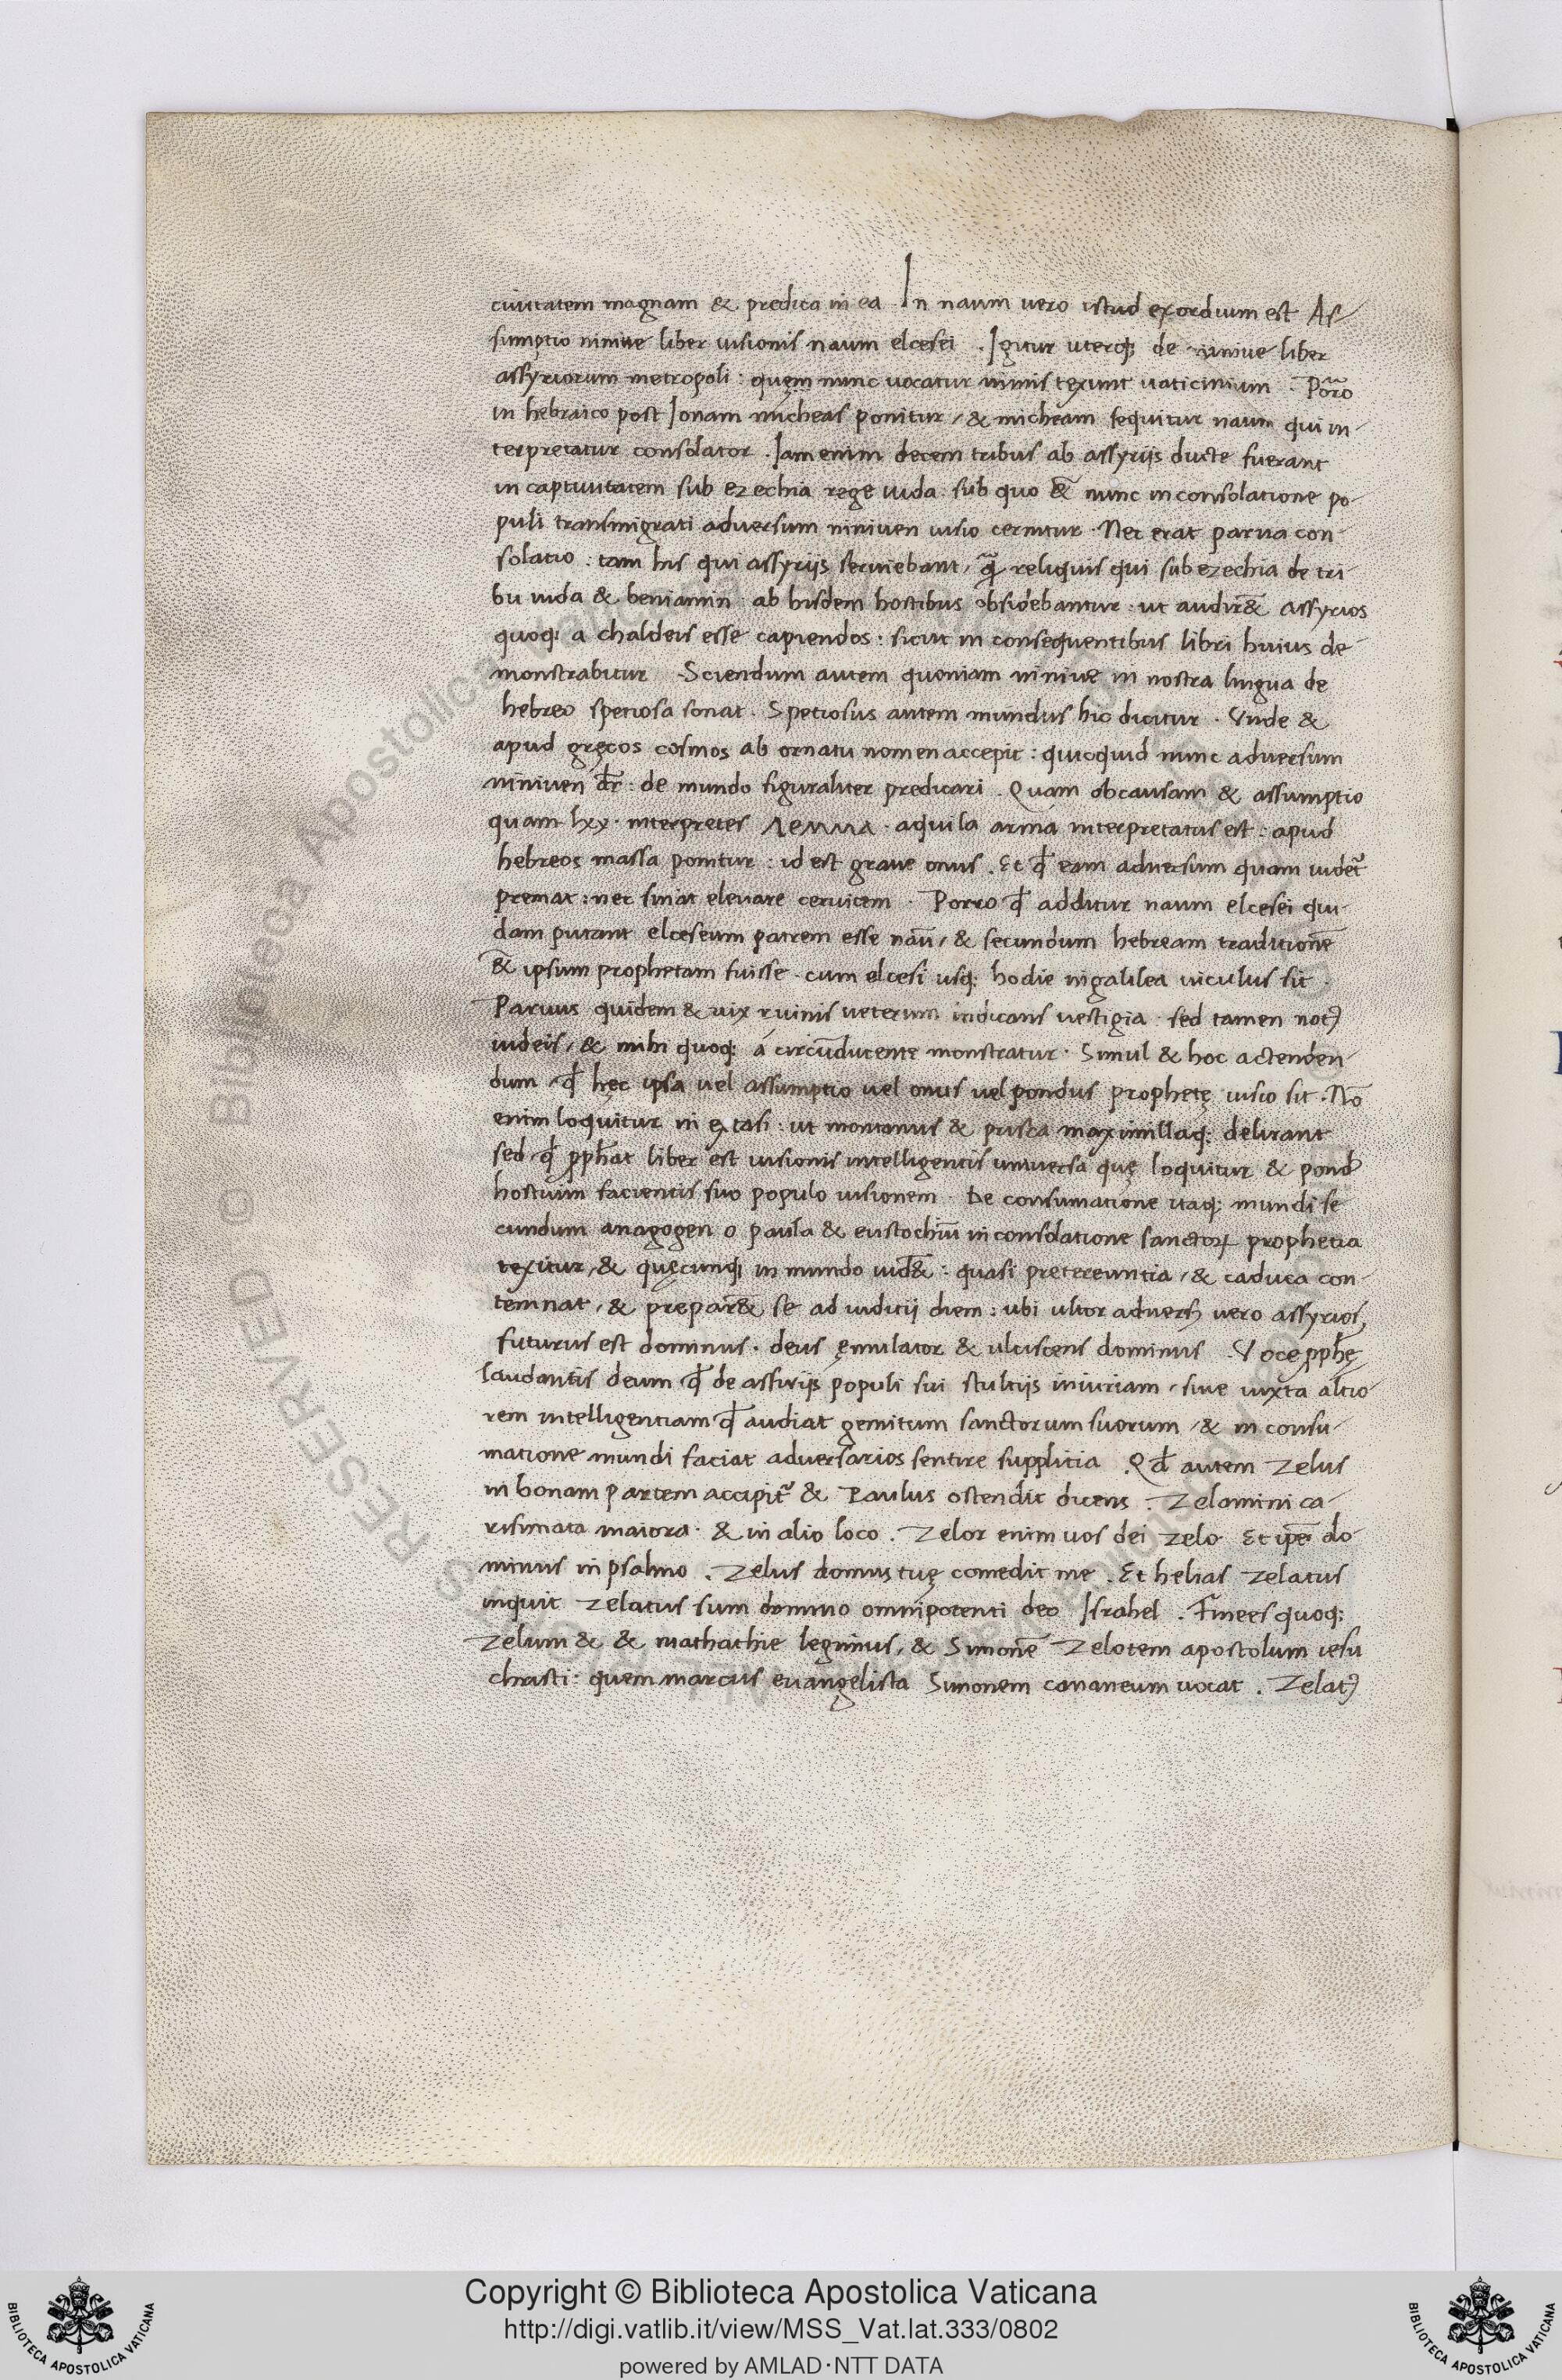 ciuitatem magnam & predica in ea. In naum vero istud exordium est As-
sumptio niniue liber uisionis naum elcesei . Igitur uterq; de niniue liber
assyriorum metropoli : quẹm nunc uocatur ninus texunt uaticinium . Porro
in hebraico post Ionam micheas ponitur, & micheam sequitur naum qui in-
terpretatur consolator . Iam enim decem tribus ab assyrijs ducte fuerant
in captiuitatem sub ezechia rege iuda : sub quo & nunc in consolatione po-
puli transmigrati adversum niniven uisio cernitur . Nec erat parua con
solatio : tam his qui assyrijs serviebant, q̃ reliquis qui sub ezechia de tri-
bu iuda & beniamin ab hisdem hostibus obsidebantur . ut audir& assyrios
quoq; a chaldeis esse capiendos : sicut in consequentibus libri huius de-
monstrabitur . Sciendum autem quoniam niniue in nostra lingua de
hebreo speciosa sonat . Speciosus autem mundus hic dicitur . Vnde &
apud gręcos cosmos ab ornatu nomen accepit : quicquid nunc adversum
niniuen dr̃ : de mundo figuraliter predicari . Quam ob causam & assumptio
quam lxx . interpretes λemma . aquila arma interpretatus est : apud
hebreos massa ponitur : id est grave onus . Et qđ eam adversum quam uidet᷑
premat : nec sinat elevare cervicem . Porro qđ additur naum elcesei qui-
dam putant elceseum patrem esse naũ, & secundum hebream traditionẽ
& ipsum prophetam fuisse . cum elcesi usq; hodie in galilea uiculus sit .
Parvus quidem & uix ruinis veterum indicans vestigia . sed tamen not9
iudeis, & mihi quoq; á circũducente monstratur . Simul & hoc actenden-
dum qđ hęc ipsa uel assumptio uel onus uel pondus prophetę uisio sit . Nõ
enim loquitur in extasi : ut montanus & prisca maximillaq; delirant
sed qđ pp̃hat liber est uisionis intelligentis universa quę loquitur & pond9
hostium facientis suo populo uisionem . De consumatione itaq; mundi se
cundum anagogen o paula & eustochiũ in consolatione sanctoꝝ prophetia
texitur, & quęcunq; in mundo uid& : quasi pretereuntia, & caduca con-
temnat, & prepar& se ad iudicii diem : ubi ultor aduers9 vero assyrios,
futurus est dominus . deus ęmulator & ulciscens dominus . Voce pp̃hę
laudantis deum qđ de assirijs populi sui stultijs iniuriam, sive iuxta altio-
rem intelligentiam qđ audiat gemitum sanctorum suorum, & in consu-
matione mundi faciat adversarios sentire supplicia . Qđ autem zelus
in bonam partem accipit᷑ & Paulus ostendit dicens . Zelamini ca-
rismata maiora . & in alio loco . Zelor enim uos dei zelo . Et ip̃e do-
minus in psalmo . Zelus domus tuę comedit me . Et helias zelatus
inquit zelatus sum domino omnipotenti deo Israhel . Finees quoq;
zelum & & mathathie legimus, & Simonẽ Zelotem apostolum iesu
christi : quem marcus evangelista Simonem cananeum uocat . Zelat9
Copyright © Biblioteca Apostolica Vaticana
http://digi.vatlib.it/view/MSS_Vat.lat.333/0802
powered by AMLAD·NTT DATA